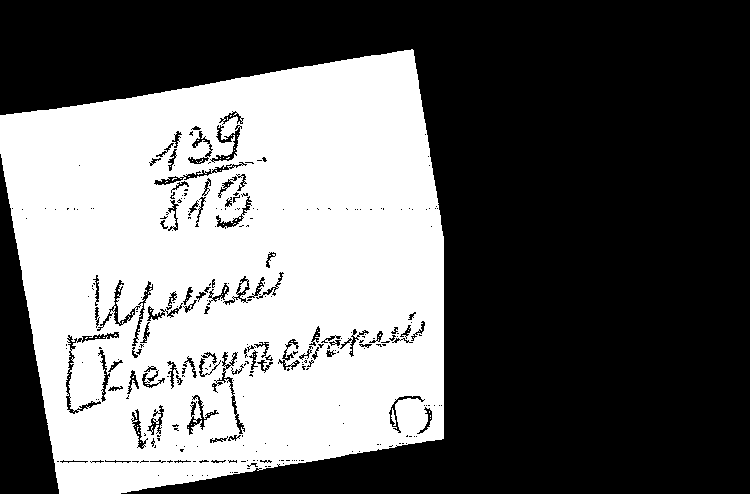 139
813
Ириней
[Клементьевский
И.А]